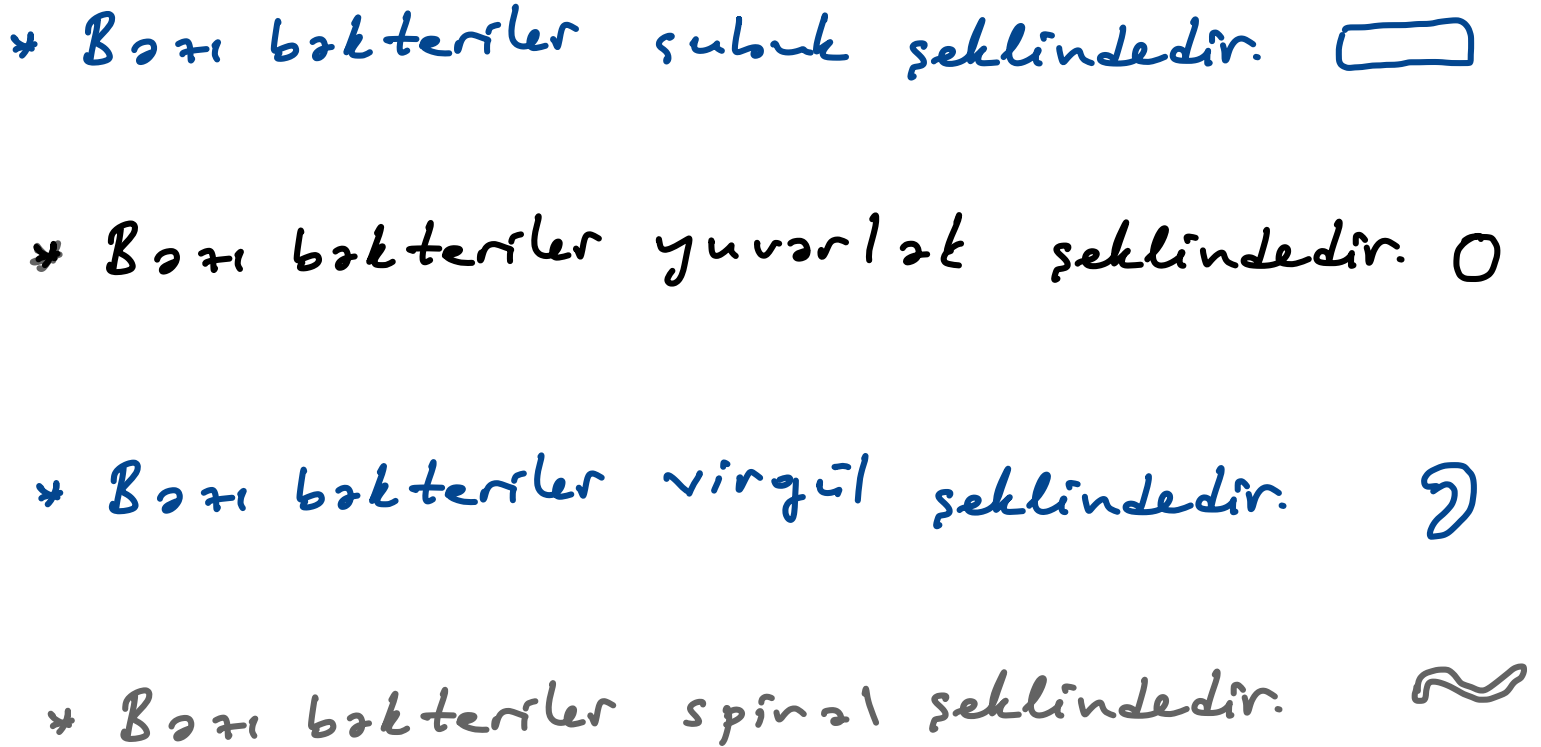 * Bazı bakteriler çubuk şeklindedir.
* Bazı bakteriler yuvarlak şeklindedir.
* Bazı bakteriler virgül şeklindedir.
* Bazı bakteriler spiral şeklindedir.